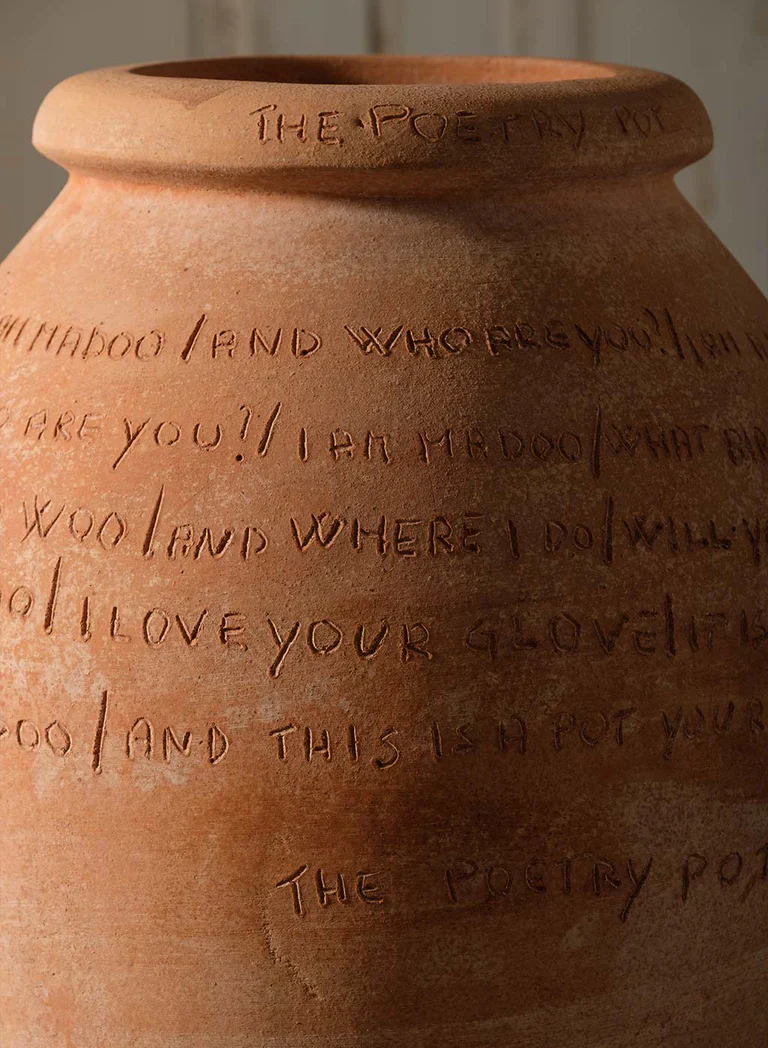 THE · POETRY POT
MADOO / AND WHO ARE YOU? / I AM
ARE YOU? / I AM MADOO / WHAT
WOO / AND WHERE I DO / WILL
/ I LOVE YOUR GLOVE / IT IS
/ AND THIS IS A POT YOUR
THE POETRY POT